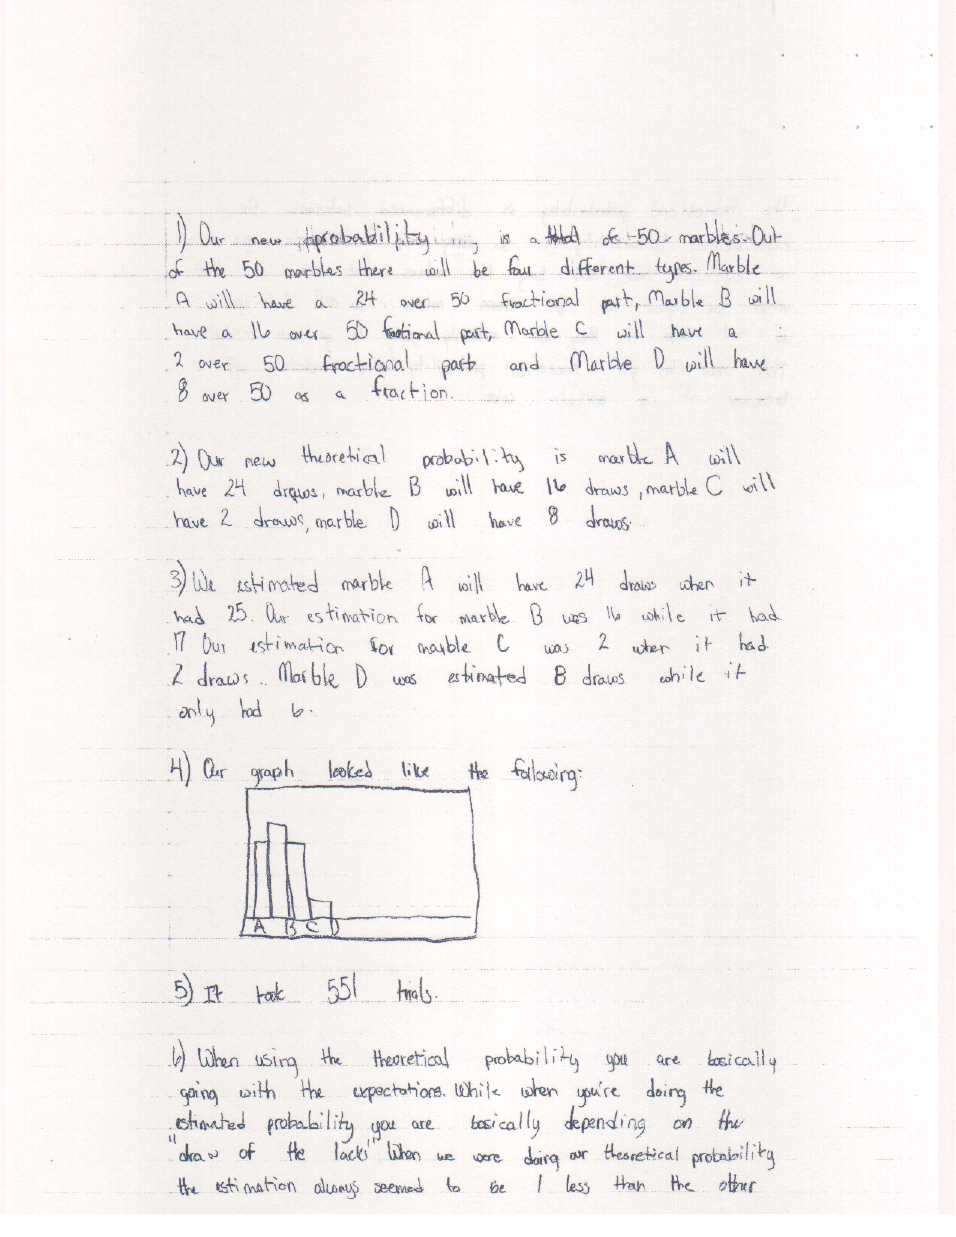 1) Our new probability, is a total of 50 marbles. Out
of the 50 marbles there will be four different types. Marble
A will have a 24 over 50 fractional part, Marble B will
have a 16 over 50 fractional part, Marble C will have a
2 over 50 fractional part and Marble D will have
8 over 50 as a fraction.
2) Our new theoretical probability is marble A will
have 24 draws, marble B will have 16 draws, marble C will
have 2 draws, marble D will have 8 draws.
3) We estimated marble A will have 24 draws when it
had 25. Our estimation for marble B was 16 while it had
17 Our estimation for marble C was 2 when it had
2 draws. Marble D was estimated 8 draws while it
only had 6.
4) Our graph looked like the following:
A B C D
5) It took 551 trials.
6) When using the theoretical probability you are basically
going with the expectations. While when you're doing the
estimated probability you are basically depending on the
"draw of the lack" When we were doing our theoretical probability
the estimation always seemed to be 1 less than the other